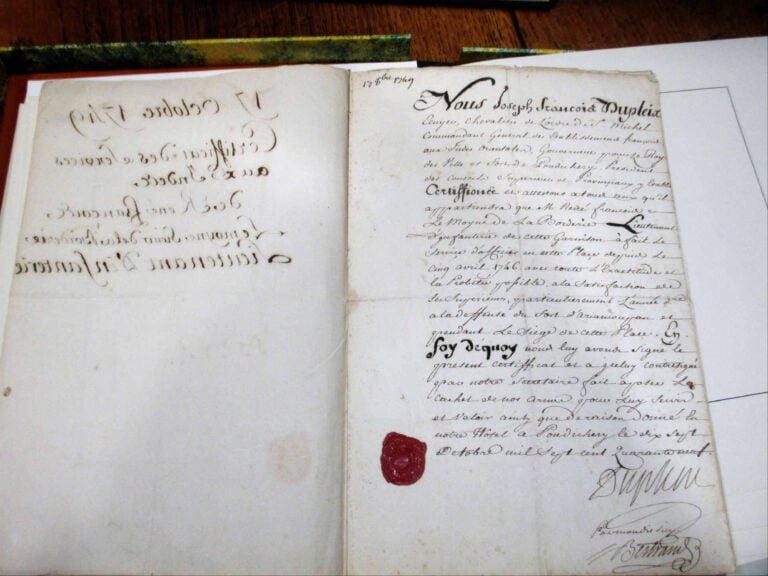 17 8bre 1749
Nous Joseph François Dupleix
Ecuyer, Chevalier de L'ordre de St. Michel
Commandant General des Etablissements françois
aux Indes Orientales, Gouverneur pour le Roy
des Ville et Fort de Pondichery, President
des Conseils Superieurs et Provinciaux y Etablis
Certiffions et assurons a tous ceux qu'il
appartiendra que M. René françois
Le Moyne de La Borderie Lieutenant
d'infanterie de cette Garnison à fait le
Service d'officier en cette Place depuis le
cinq avril 1746 avec toute L'Exactitude et
la Probité possible, a la Satisfaction de
ses Superieurs, particulierement L'année dre
a la deffense du Fort d'ariancoupan et
pendant Le Siege de cette Place. En
foy dequoy nous luy avons signé le
present certifficat et a iceluy contresigné
par notre Secretaire fait aposer Le
cachet de nos armes pour luy Servir
et Valoir ainsy que de raison donné En
notre Hôtel à Pondichery le dix Sept
Octobre mil Sept cent Quarante neuf.
Dupleix
Par mondit Sieur
Bertrand
17 Octobre 1749
Certificat des Services
aux Indes,
de René françois,
Lemoyne Sieur de la Borderie,
Lieutenant D'infanterie